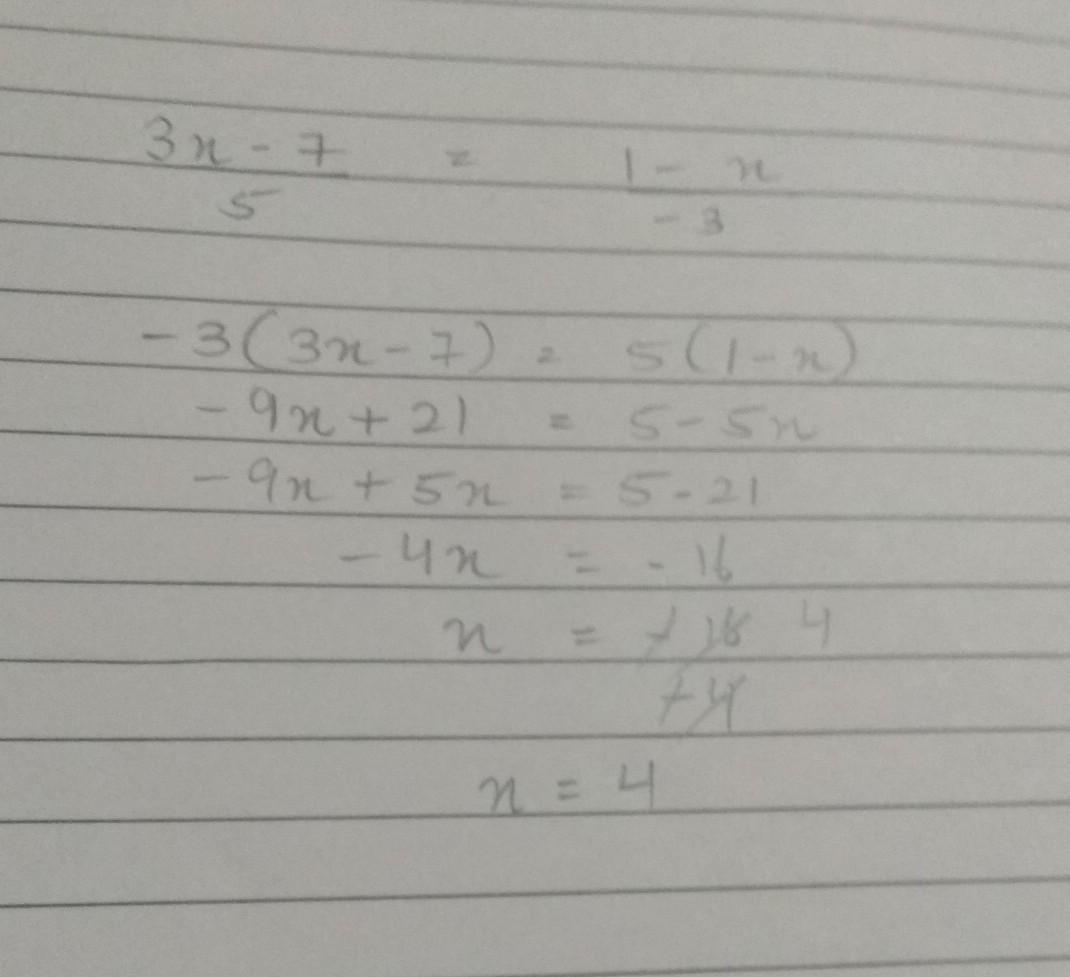 3x - 7 = 1 - x
5 -3
-3(3x - 7) = 5(1 - x)
-9x + 21 = 5 - 5x
-9x + 5x = 5 - 21
-4x = -16
x = -16 4
-4
x = 4